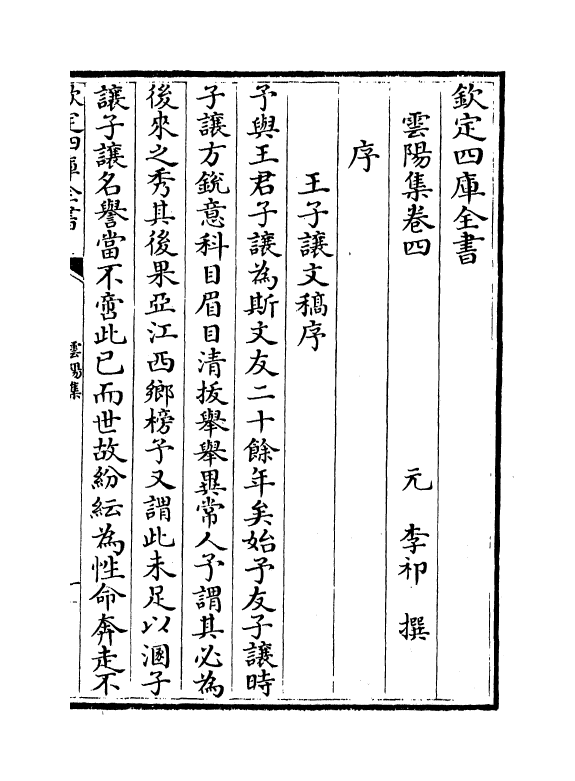 欽定四庫全書
雲陽集卷四
元 李祁 撰
序
王子讓文稿序
予與王君子讓為斯文友二十餘年矣始予友子讓時
子讓方銳意科目眉目清拔舉舉異常人予謂其必為
後來之秀其後果亞江西鄉榜予又謂此未足以溷子
讓子讓名譽當不啻此已而世故紛紜為性命奔走不
欽定四庫全書
雲陽集
一